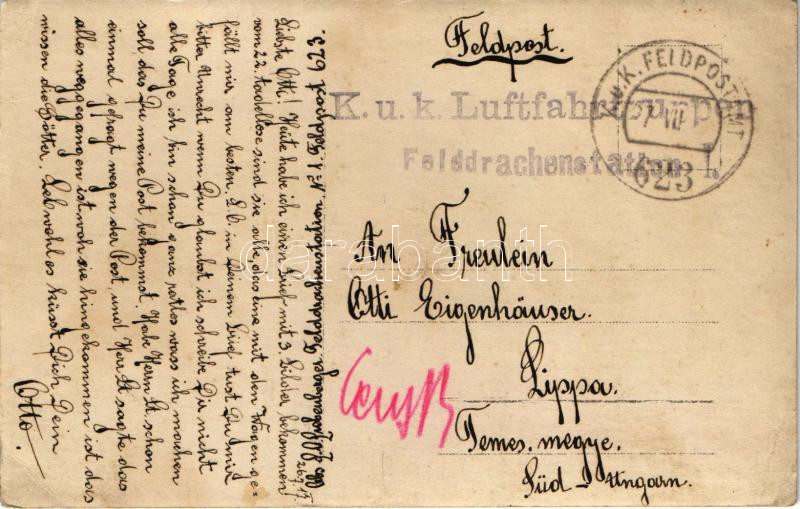 Feldpost.
K. u. k. Luftfahrtruppen
Felddrachenstation 1.
K.u.K. FELDPOSTAMT
VII
623
An Freulein
Otti Eigenhäuser.
Lippa.
Temes. megye.
Süd-Ungarn.
Felddrachenstation No 1 Feldpost 623.
26.7.17
Liebste Otti! Heute habe ich einen Brief mit 3. Bilder bekommen
vom 22. tadellose sind sie alle, das eine mit den Wagen ge-
fällt mir am besten. L.O. in Deinem Brief tust Du mir
bitter Unrecht wenn Du glaubst ich schreibe Du nicht
alle Tage ich bin schon ganz ratlos wass ich machen
soll, das Du meine Post bekommst. Habe Herrn Lt. schon
einmal gefragt wegen der Post, und Herr Lt. sagte das
alles weggegangen ist, woh sie hingekommen ist das
wissen die Götter. Leb wohl es küsst Dich Dein
Otto.
darabanth